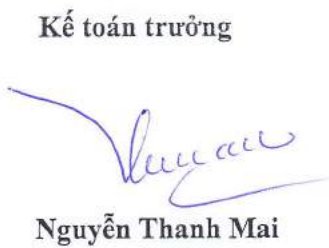 Kế toán trưởng
Nguyễn Thanh Mai